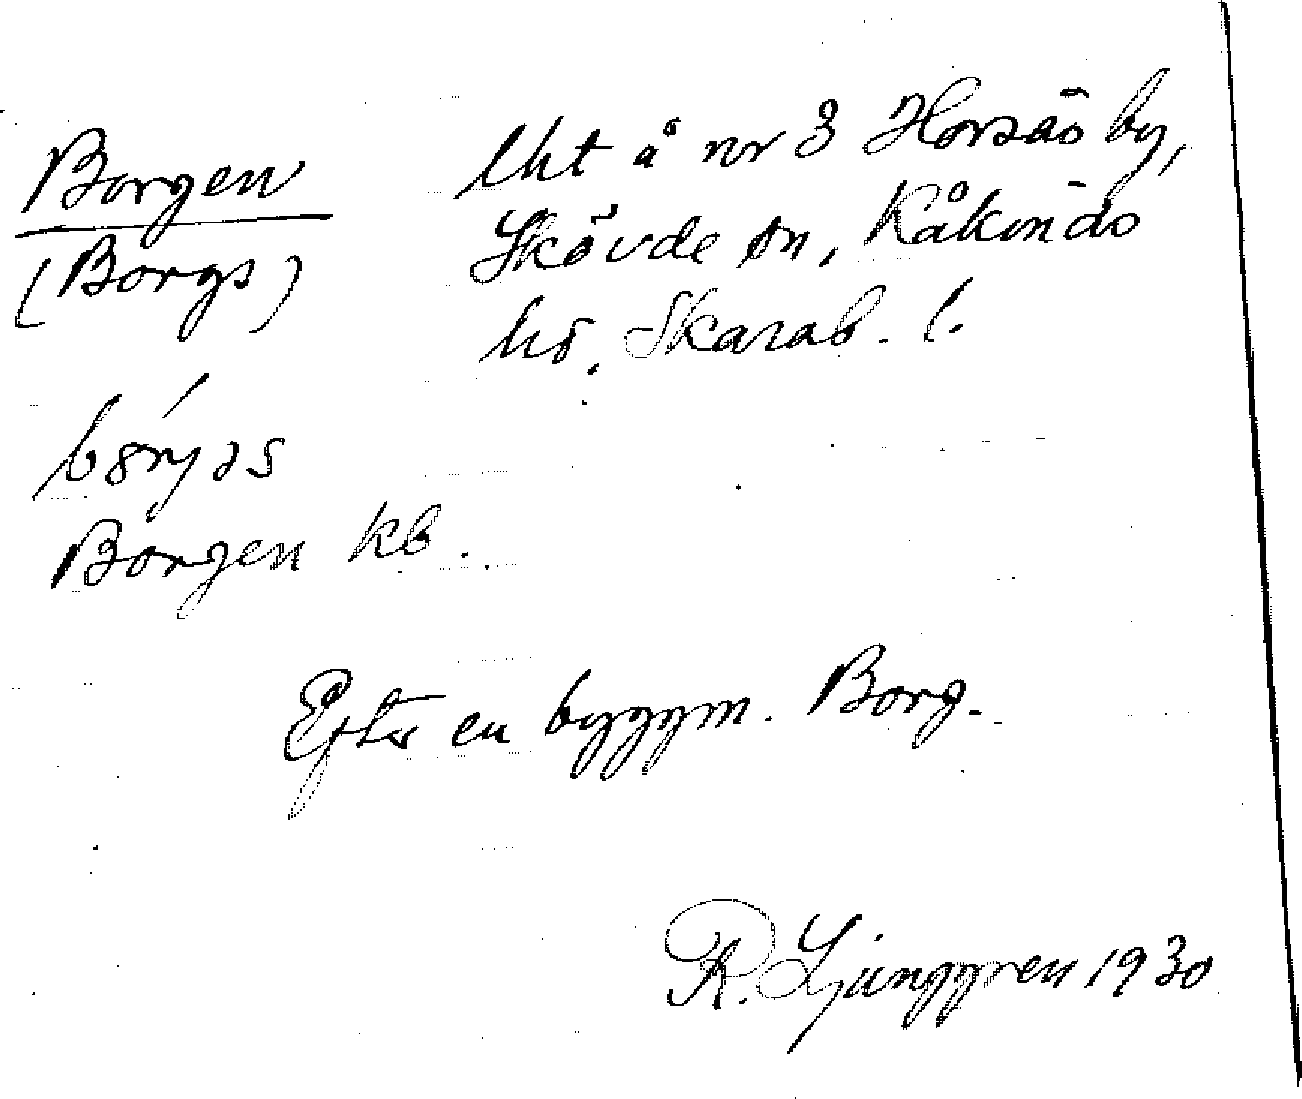 Borgen
(Borgs)
lht å nr 3 Horsås by,
Skövde sn, Kåkinds
hd, Skarab. l.
Borgen kb.
Efter en byggm. Borg.
R. Ljunggren 1930